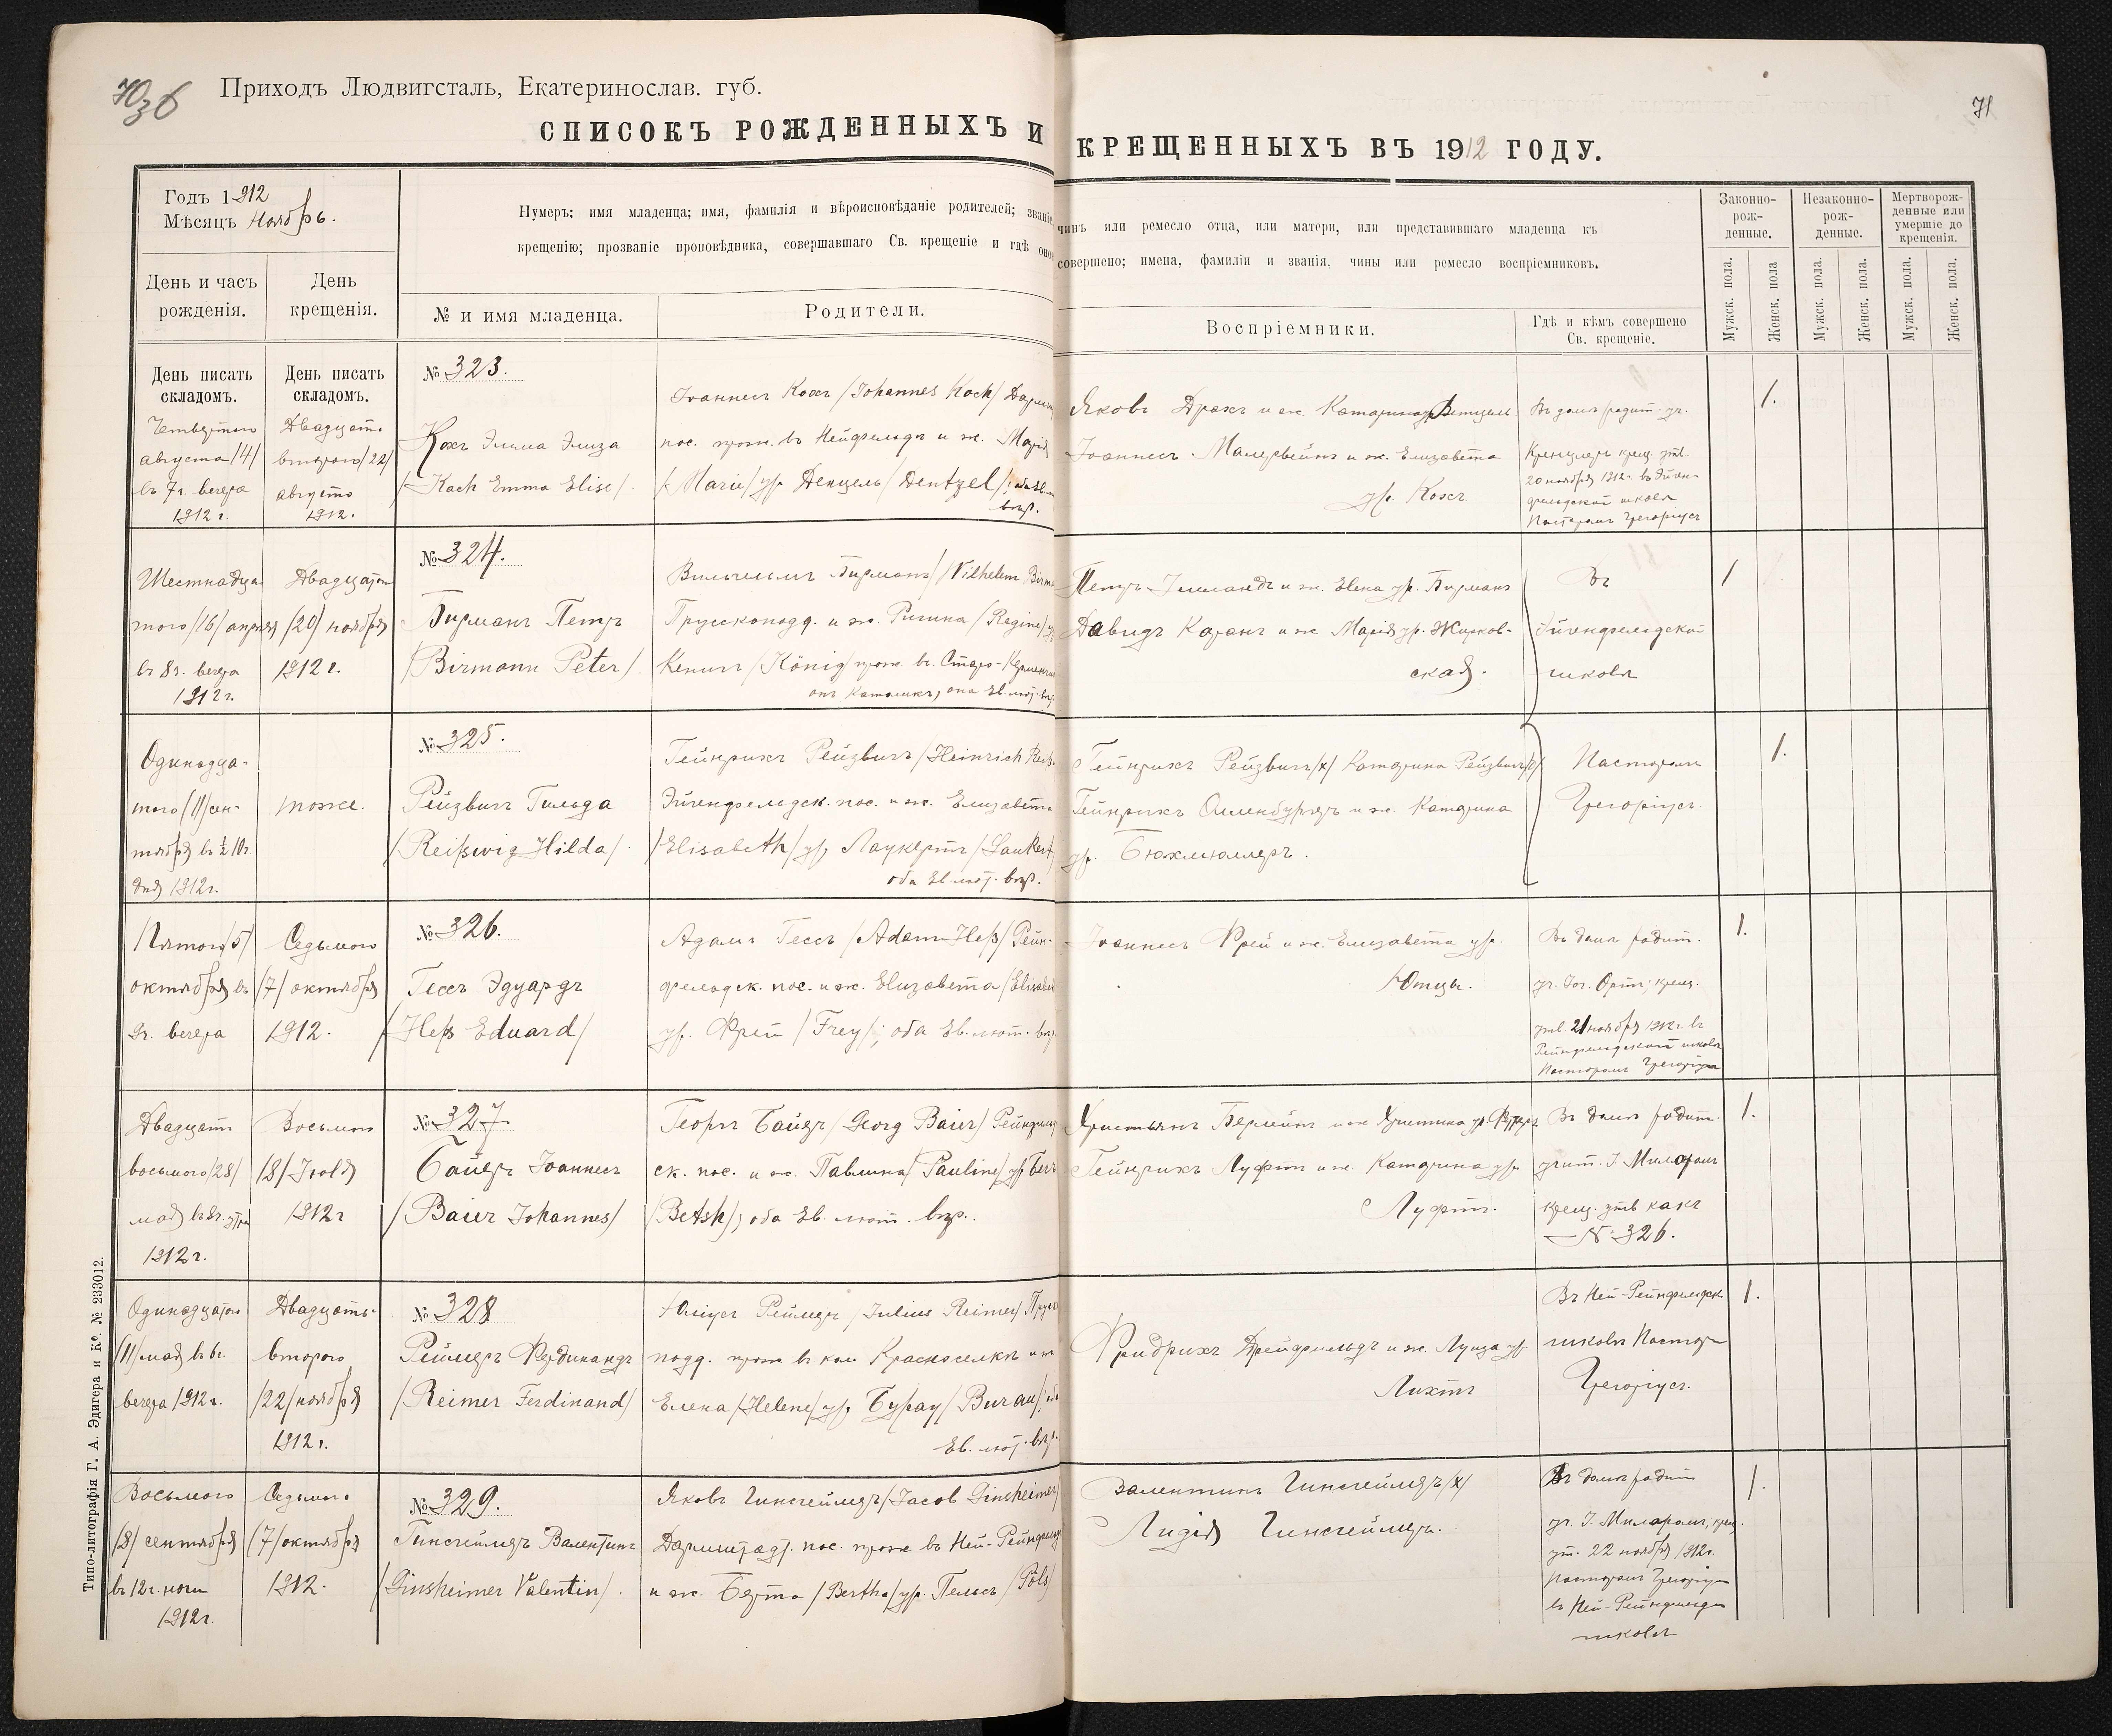 Приходъ Людвигсталь, Екатеринослав. губ.
71
СПИСОКЪ РОЖДЕННЫХЪ И КРЕЩЕННЫХЪ ВЪ 1912 ГОДУ.
Годъ 1912
Мѣсяцъ Ноябрь.
День и часъ рожденія.
День крещенія.
Нумеръ; имя младенца; имя, фамилія и вѣроисповѣданіе родителей; званіе, чинъ или ремесло отца, или матери, или представившаго младенца къ
крещенію; прозваніе проповѣдника, совершавшаго Св. крещеніе и гдѣ оное совершено; имена, фамиліи и званія, чины или ремесло воспріемниковъ.
№ и имя младенца.
Родители.
Воспріемники.
Гдѣ и кѣмъ совершено
Св. крещеніе.
Законно-
рож-
денные.
Незаконно-
рож-
денные.
Мертворож-
денные или
умершіе до
крещенія.
Мужск. пола.
Женск. пола
Мужск. пола.
Женск. пола.
Мужск. пола.
Женск. пола.
День писать
складомъ.
Четвертого
августа /4/
въ 7 ч. вечера
1912 г.
День писать
складомъ.
Двадцать
второго /22/
августа
1912.
№ 323.
Кохъ Эмма Элиза
/Koch Emma Elise/.
Іоаннесъ Кохъ /Johannes Koch/
пос. прож. въ Нейфельдѣ и ж. Марія
/Marie/ ур. Денцель /Dentzel/; оба Ев.
вѣр.
Яковъ Драхъ и ж. Катарина ур. Денцель
Іоаннесъ и ж. Елизавета
ур. Кохъ
Въ домѣ родит. уч.
крещ. утв.
20 ноября 1912 г. въ Эйген-
фельдской школѣ
Пасторомъ Грегоріусъ
1.
Шестнадца-
того /16/ апрѣля
въ 8 ч. вечера
1912 г.
Двадцатого
/20/ ноября
1912 г.
№ 324.
Бирманъ Петръ
/Birmann Peter/.
Вильгельмъ Бирманъ /Wilhelm
Прусскоподд. и ж. Регина /Regine/ ур.
Кенигъ /König/ прож. въ Старо-
онъ католикъ, она Ев. лют. вѣр.
Петръ и ж. Елена ур. Бирманъ
Давидъ Каранъ и ж. Марія ур. Жирков-
ская.
Въ
Эйгенфельдской
школѣ
1
Одинадца-
того /11/ сен-
тября въ ½ 10 ч.
дня 1912 г.
тоже.
№ 325.
Рейзвигъ Гильда
/Reißwig Hilda/.
Гейнрихъ Рейзвигъ /Heinrich
Эйгенфельдск. пос. и ж. Елизавета
/Elisabeth/ ур. Лаукертъ /Laukert/
оба Ев. лют. вѣр.
Гейнрихъ Рейзвигъ /х/ Катарина Рейзвигъ /х/
Гейнрихъ Оленбургеръ и ж. Катарина
ур. Бюхмюллеръ.
Пасторомъ
Грегоріусъ.
1.
Пятого /5/
октября въ
9 ч. вечера
Седьмого
/7/ октября
1912.
№ 326.
Гессъ Эдуардъ
/Heß Eduard/
Адамъ Гессъ /Adam Heß/ Рейн-
фельдск. пос. и ж. Елизавета
ур. Фрей /Frey/; оба Ев. лют. вѣр.
Іоаннесъ Фрей и ж. Елизавета ур.
Ютцы.
Въ домѣ родит.
уч. Іог. Ортъ; крещ.
утв. 21 ноября 1912 г. въ
Рейнфельдской школѣ
Пасторомъ Грегоріусъ
1.
Двадцать
восьмого /28/
мая въ 8 ч. утра
1912 г.
Восьмого
/8/ Іюля
1912 г
№ 327
Байеръ Іоаннесъ
/Baier Johannes/
Георгъ Байеръ /Georg Baier/ Рейнфельд-
ск. пос. и ж. Павлина /Pauline/ ур.
/Betsh/; оба Ев. лют. вѣр.
Христьянъ и ж. Христина ур.
Гейнрихъ Луфтъ и ж. Катарина ур.
Луфтъ.
Въ домѣ родит.
учит. І. Милдромъ
крещ. утв какъ
№ 326.
1.
Одинадцатого
/11/ мая въ 6 ч.
вечера 1912 г.
Двадцать-
второго
/22/ ноября
1912 г.
№ 328
Реймеръ Фердинандъ
/Reimer Ferdinand/
Юліусъ Реймеръ /Julius Reimer/
подд. прож. въ кол. Красноселкѣ и ж
Елена /Helene/ ур. Бурау /Burau/; оба
Ев. лют. вѣр.
Фридрихъ Дрейфельдъ и ж. Луиза ур.
Лихтъ
Въ Ней-Рейнфельдск.
школѣ Пасторъ
Грегоріусъ.
1.
Восьмого
/8/ сентября
въ 12 ч. ночи
1912 г.
Седьмого
/7/ октября
1912.
№ 329.
Гинсгеймеръ Валентинъ
/Ginsheimer Valentin/.
Яковъ Гинсгеймеръ /Jacob Ginsheimer/
Дармштадт. пос. прож. въ Ней-Рейнфельдѣ
и ж. Берта /Bertha/ ур. Пельсъ /Pöls/
Валентинъ Гинсгеймеръ /х/
Лидія Гинсгеймеръ.
Въ домѣ родит
уч. І. Милдромъ, крещ.
ут. 22 ноября 1912 г.
Пасторомъ Грегоріусъ
въ Ней-Рейнфельдск
школѣ
1.
Типо-литографія Г. А. Эдигера и Ко. № 233012.